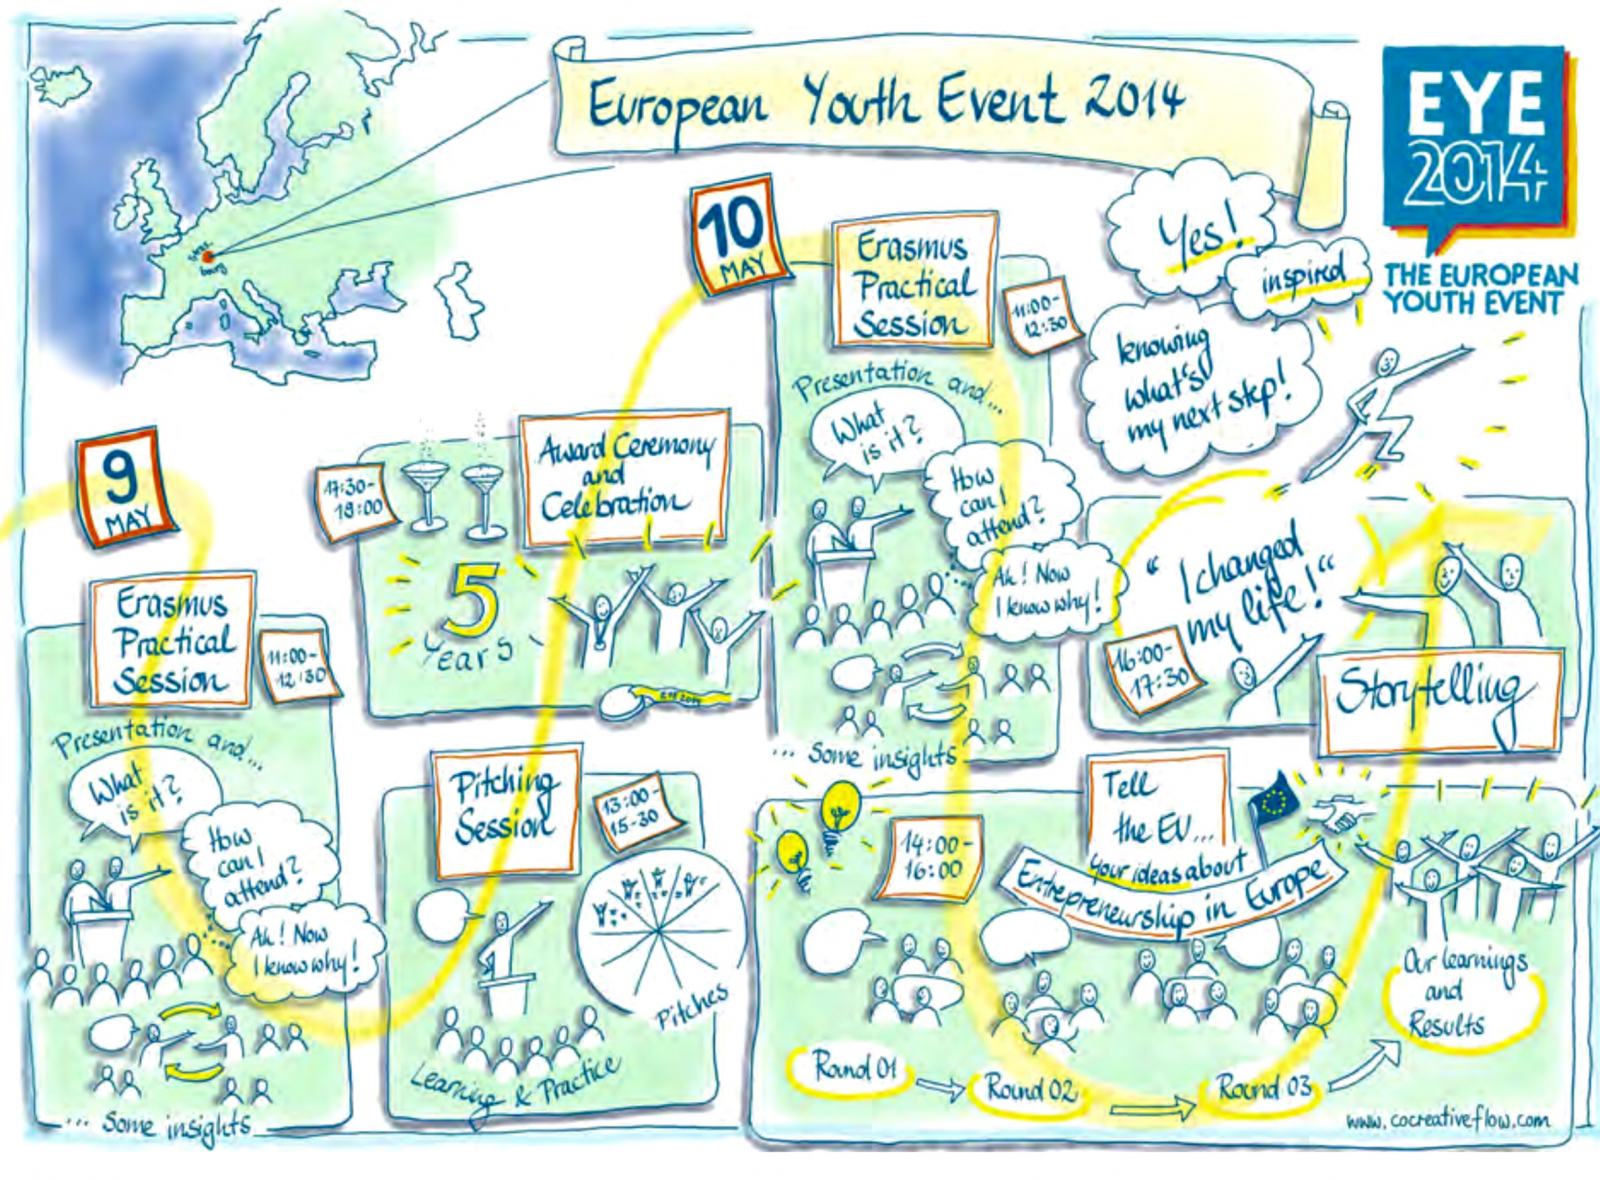 European Youth Event 2014
EYE
2014
THE EUROPEAN
YOUTH EVENT
Stras-
bourg
9
MAY
Erasmus
Practical
Session
11:00-
12:30
Presentation and...
What
is it?
How
can I
attend?
Ah! Now
I know why!
... Some insights
Pitching
Session
13:00-
15-30
Pitches
Learning & Practice
17:30-
18:00
Award Ceremony
and
Celebration
5
Years
10
MAY
Erasmus
Practical
Session
11:00-
12:30
Presentation and...
What
is it?
How
can I
attend?
Ah! Now
I know why!
... Some insights
Tell
the EU...
your ideas about
Entrepreneurship in Europe
14:00-
16:00
Round 01
Round 02
Round 03
Our learnings
and
Results
"I changed
my life!"
16:00-
17:30
Storytelling
Yes!
inspired
knowing
what's
my next step!
www.cocreativeflow.com